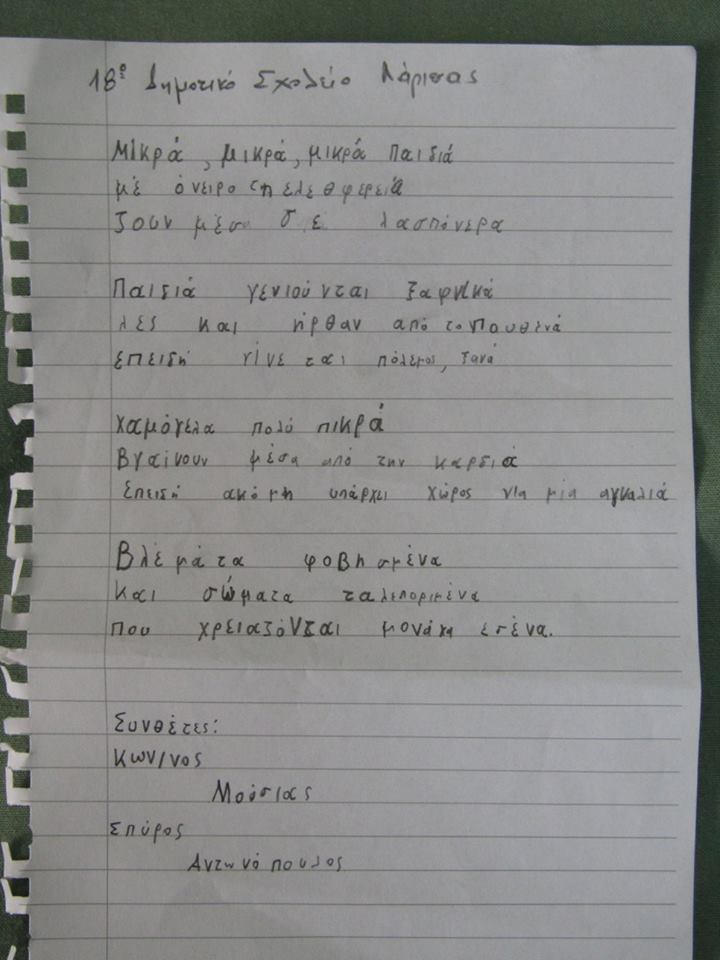 18ο Δημοτικό Σχολείο Λάρισας
Μικρά, μικρά, μικρά παιδιά
μέ όνειρο τη ελεθφερειά
ζουν μέσα σ ε λασπόνερα
Παιδιά γενιούνται ξαφνικά
λες και ήρθαν από το πουθενά
επειδή γίνεται πόλεμος, ξανά
Χαμόγελα πολύ πικρά
Βγαίνουν μέσα από την καρδιά
Επειδή ακόμη υπάρχει χώρος για μία αγκαλιά
Βλέματα φοβησμένα
και σώματα ταλεποριμένα
που χρειαζόνται μονάχα εσένα.
Συνθέτες:
Κων/νος
Μούσιας
Σπύρος
Αντωνόπουλος